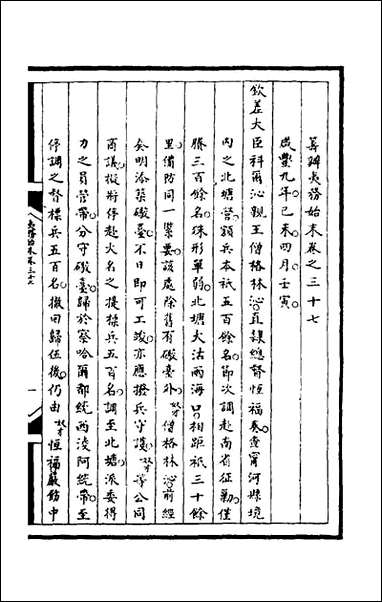 籌辦夷務始末卷之三十七
咸豐九年己未四月壬寅
欽差大臣科爾沁親王僧格林沁直隸總督恆福奏查甯河縣境
內之北塘營額兵本祇五百餘名節次調赴南省征勦僅
賸三百餘名殊形單弱北塘大沽兩海口相距祇三十餘
里備防同一喫要該處除舊有礮臺外奴才僧格林沁前經
奏明添築礮臺不日即可工竣亦應撥兵守護奴才等公同
商議擬將停赴火名之提標兵五百名調至北塘派委得
力之員管帶分守礮臺歸於察哈爾都統西淩阿統帶至
停調之督標兵五百名撤回歸伍後仍由奴才恆福嚴飭中
夷務始末卷三十七
一